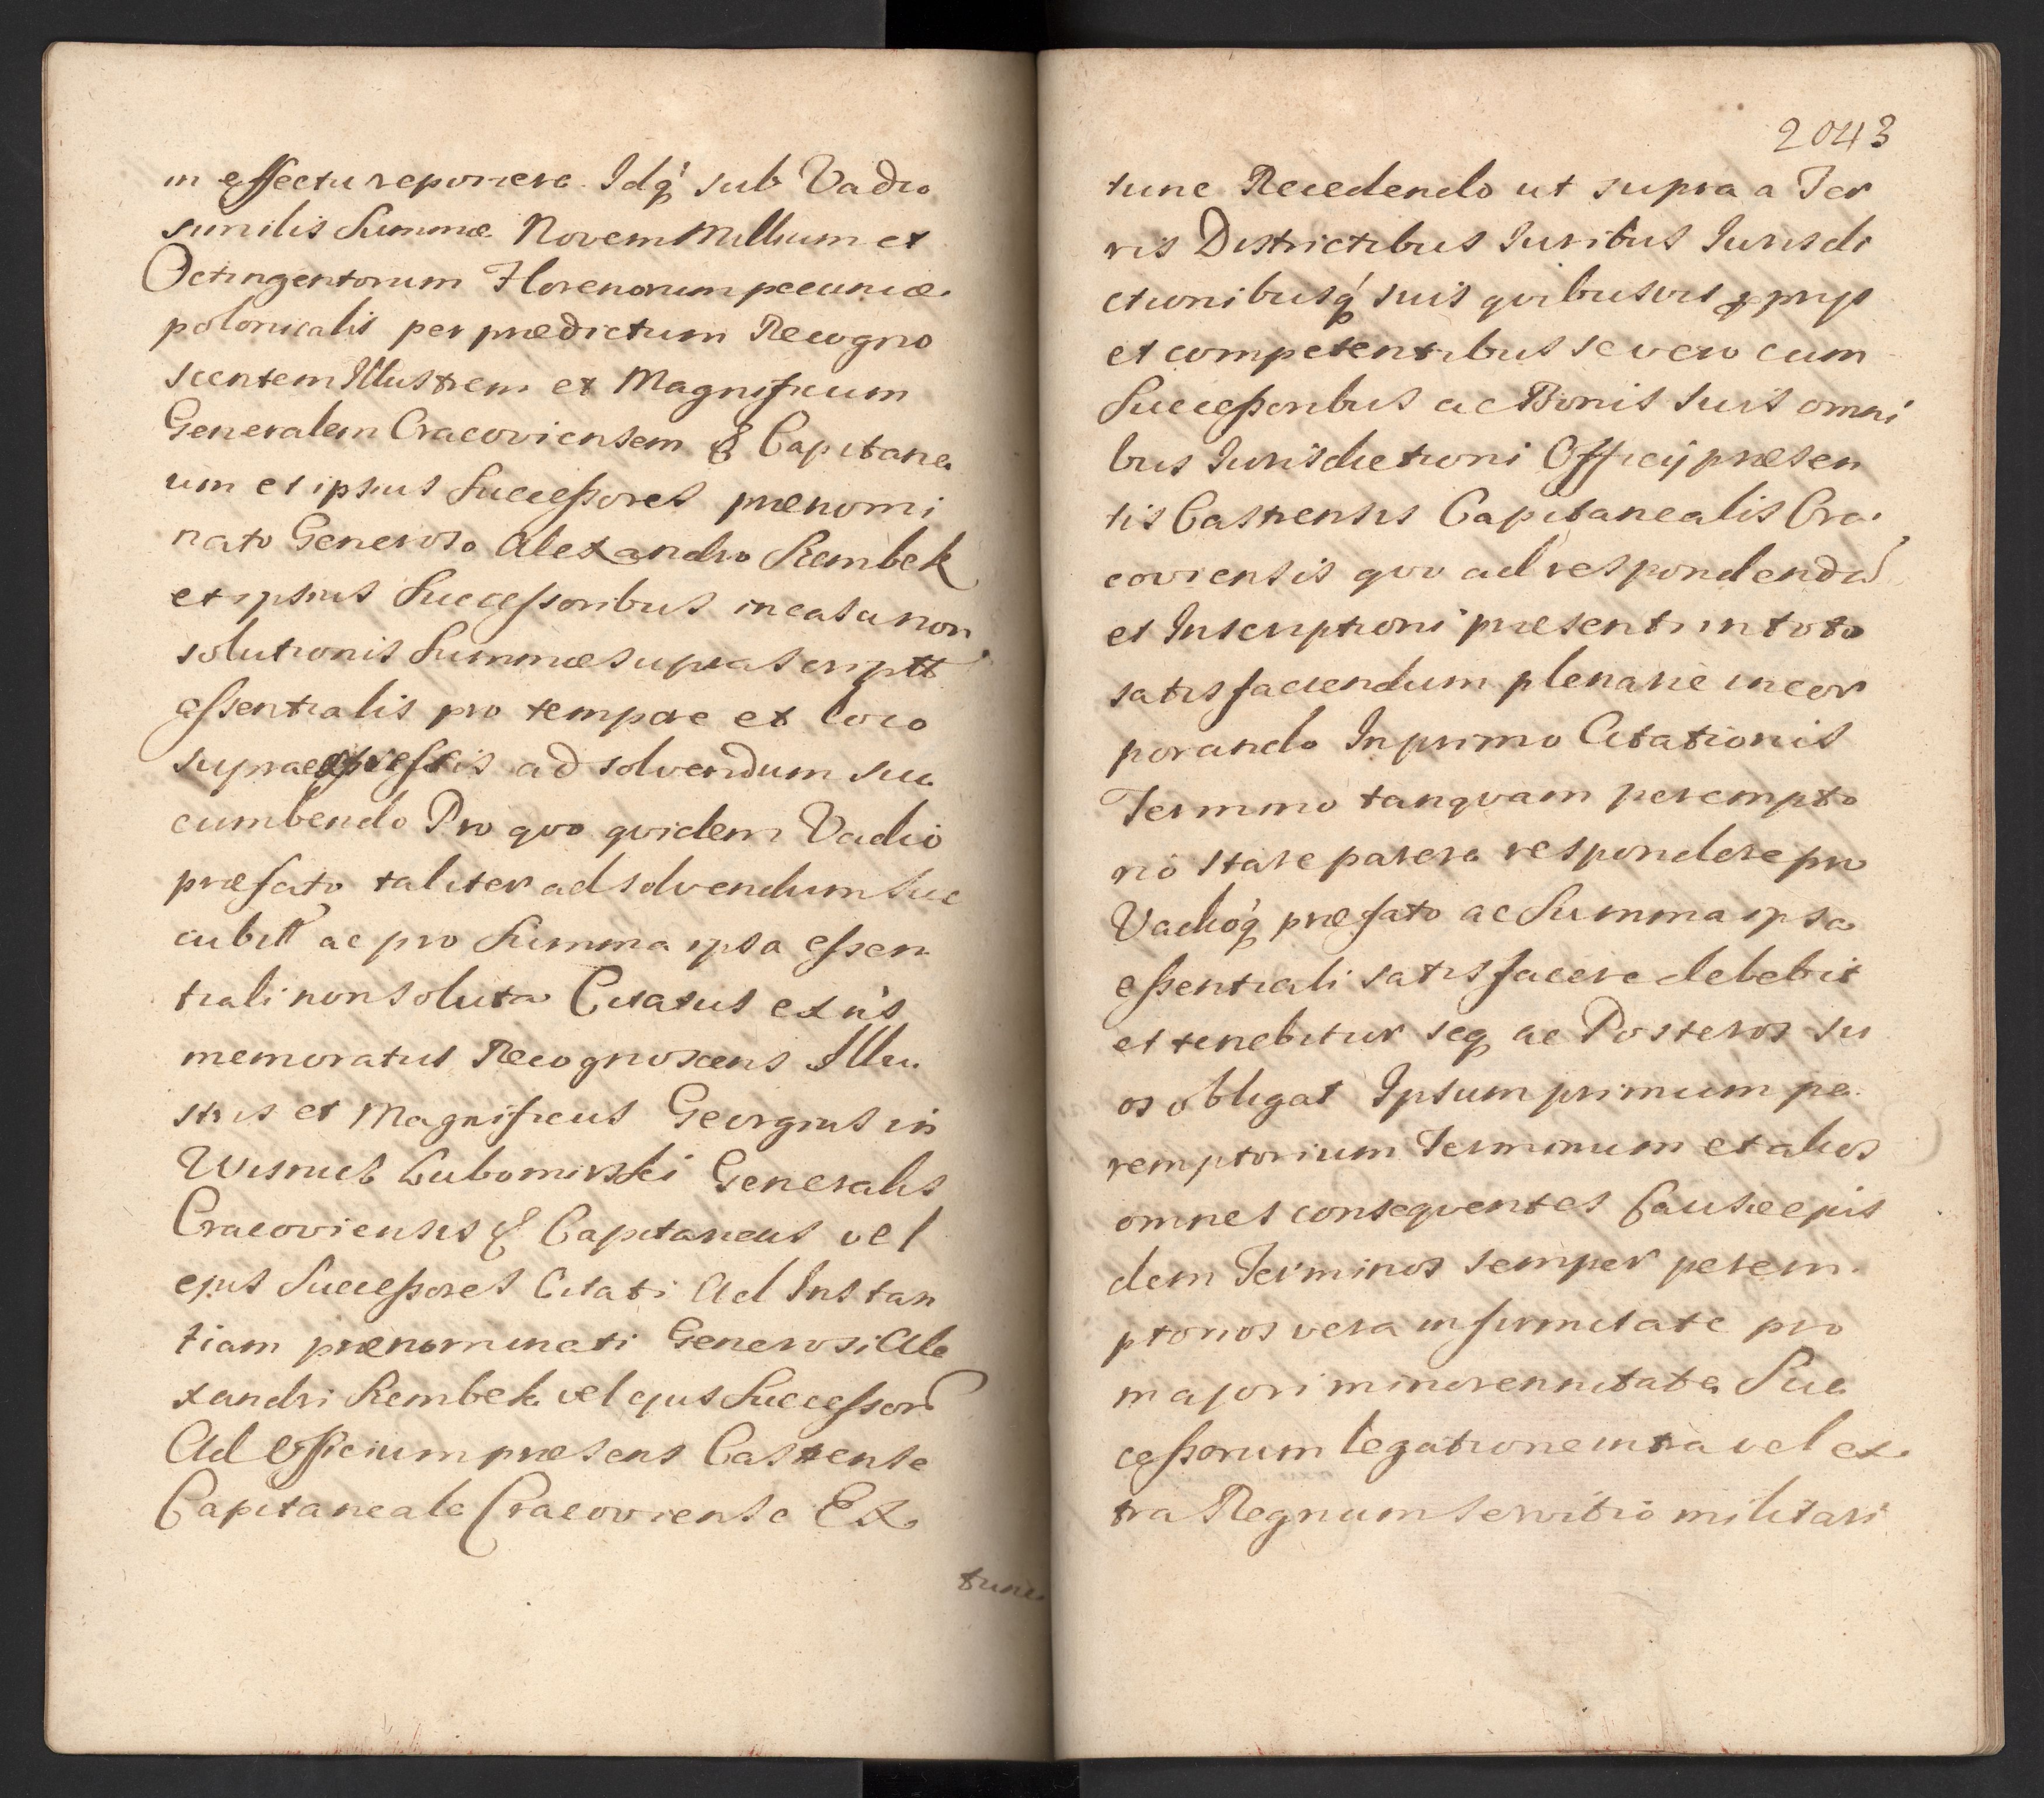 in effectu reponere. Idq́ sub Vadio
similis Summæ Novem Millium et
Octingentorum Florenorum pecuniæ
polonicalis per prædictum Recogno
scentem Illustrem et Magnificum
Generalem Cracoviensem & Capitane
um et ipsius Successores prænomi
nato Generoso Alexandro Szembek
et ipsius Successoribus in casu non
solutionis Summæ suprascriptt
essentialis pro tempore et loco
supraexpressis ad solvendum suc
cumbendo Pro quo quidem Vadio
præfato taliter ad solvendum suc
cubitt ac pro Summa ipsa essen
tiali non soluta Citatus existens
memoratus Recognoscens Illu
stris et Magnificus Georgius in
Wisnicz Lubomirski Generalis
Cracoviensis & Capitaneus vel
ejus Successores Citati Ad Instan
tiam prænominati Generosi Ale
xandri Szembek vel ejus Successor
Ad Officium præsens Castrense
Capitaneale Cracoviense Ex
tunc
2043
tunc Recedendo ut supra a Ter
ris Districtibus Iuribus Iurisdi
ctionibusq́ suis qvibusvis pprijs
et competentibus se vero cum
Successoribus ac Bonis suis omni
bus Iurisdictioni Officij præsen
tis Castrensis Capitanealis Cra
coviensis qvo ad respondend
et Inscriptioni præsenti in toto
satisfaciendum plenarie incor
porando In primo Citationis
Termino tanqvam perempto
rio stare parere respondere pro
Vadioq́ præfato ac Summa ipsa
essentiali satisfacere debebit
et tenebitur seq ac Posteros su
os obligat Ipsum primum pe
remptorium Terminum et alios
omnes conseqventes Causæ ejus
dem Terminos semper perem
ptorios vera infirmitate pro
majori minorennitate Suc
cessorum legatione intra vel ex
tra Regnum servitio militari